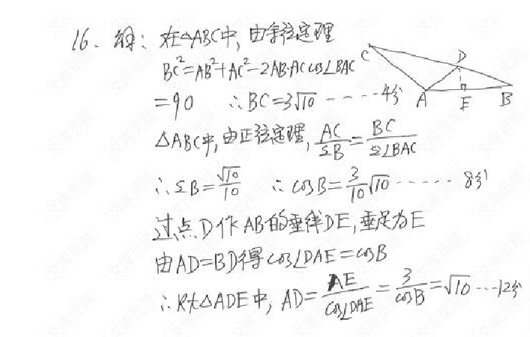 16、解：在△ABC中，由余弦定理
BC²=AB²+AC²-2AB·AC cos∠BAC
=90 ∴BC=3√10 -----4分
△ABC中，由正弦定理，AC/sinB=BC/sin∠BAC
∴sinB=√10/10 ∴cosB=3/10√10 -----8分
过点D作AB的垂线DE，垂足为E
由AD=BD得cos∠DAE=cosB
∴Rt△ADE中，AD=AE/cos∠DAE=3/cosB=√10---12分
C
D
A
E
B